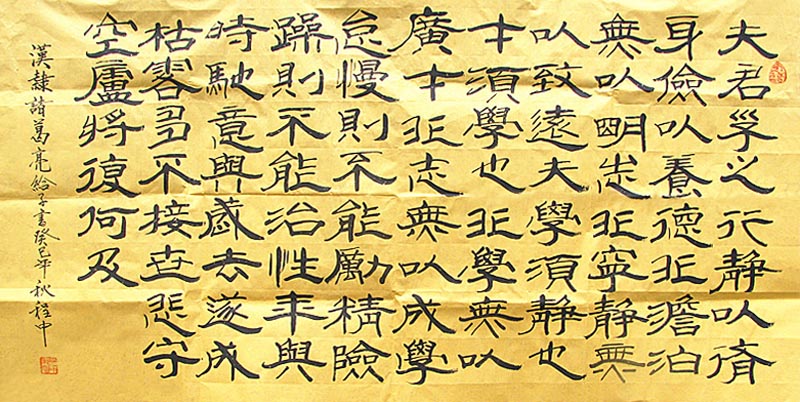 夫君子之行靜以脩
身儉以養德非澹泊
無以明志非寧靜無
以致遠夫學須靜也
才須學也非學無以
廣才非志無以成學
怠慢則不能勵精險
躁則不能治性年與
時馳意與歲去遂成
枯落多不接世悲守
空廬將復何及
漢隸諸葛亮給子書癸巳年秋程中